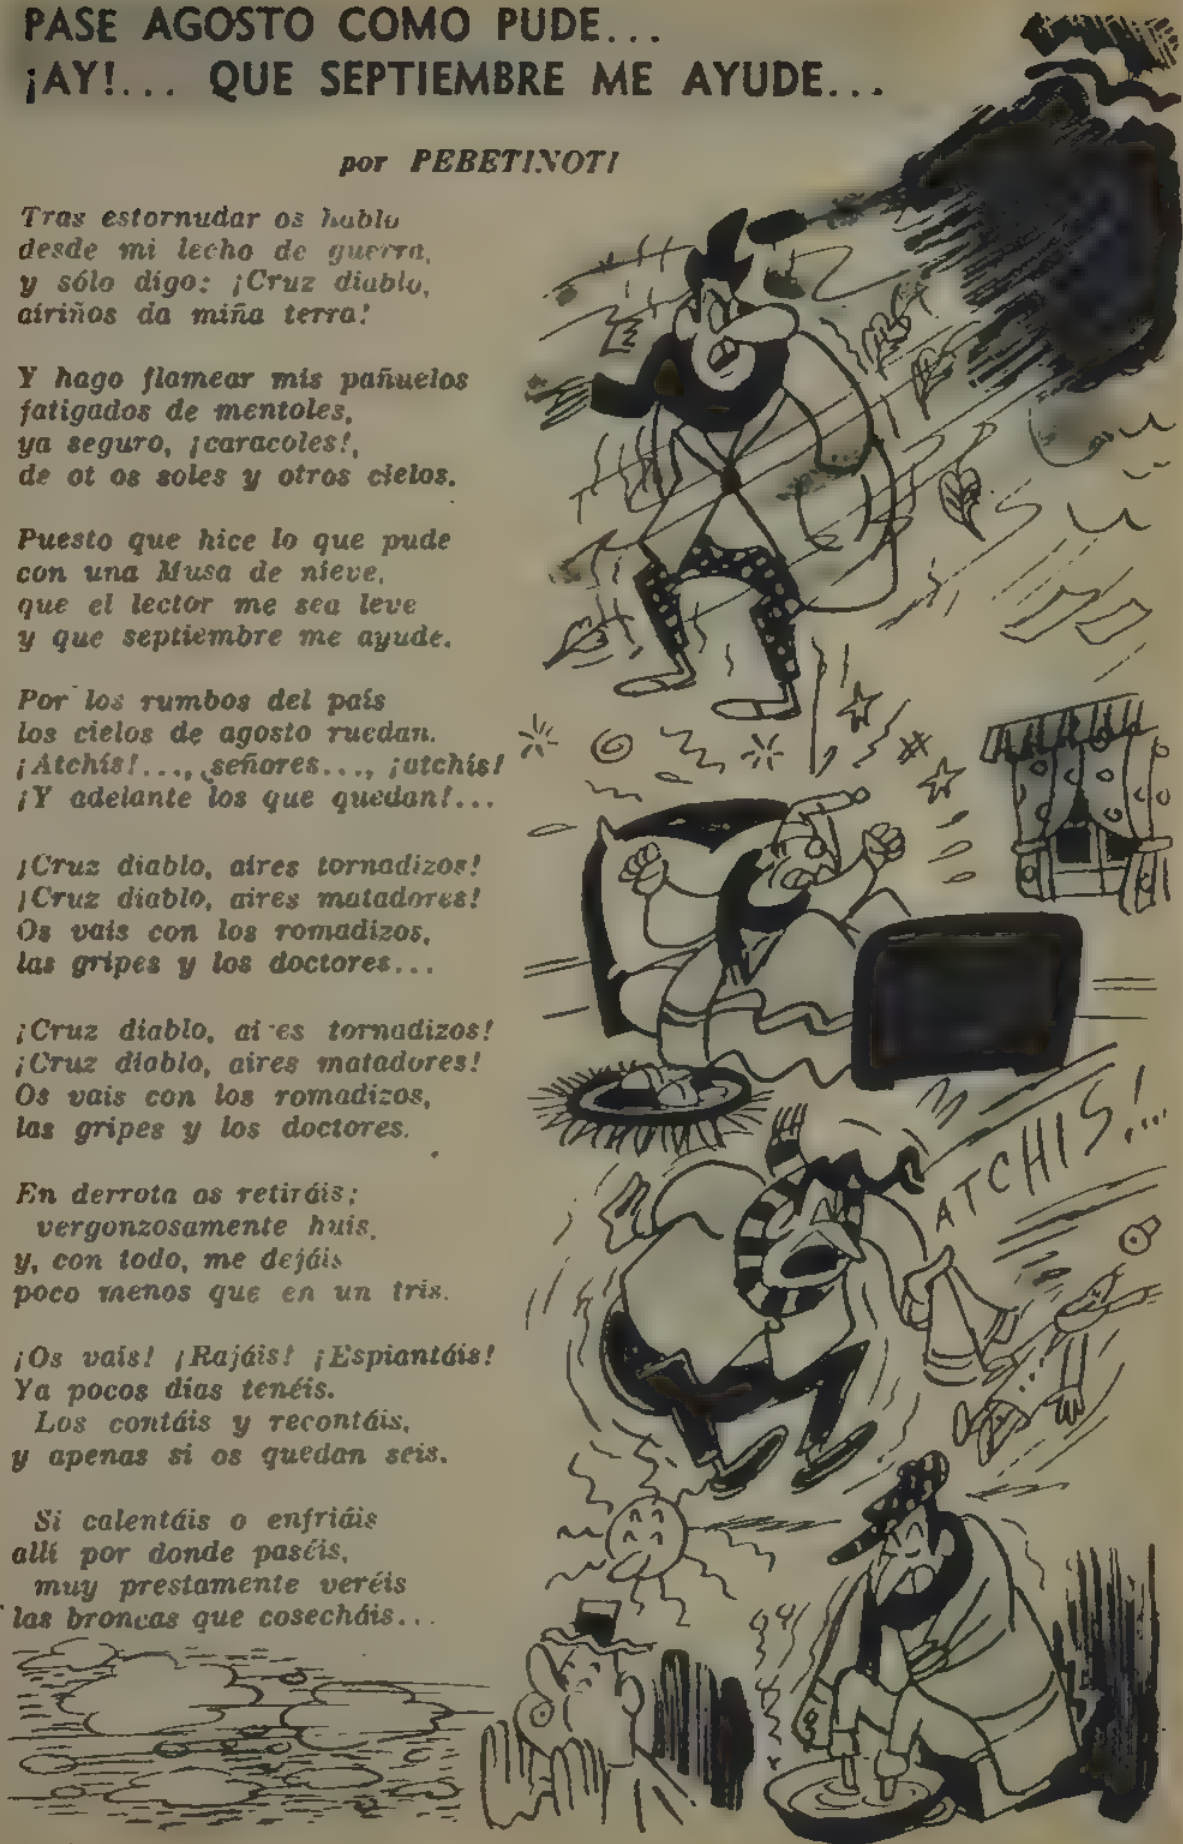 PASE AGOSTO COMO PUDE...
¡AY!... QUE SEPTIEMBRE ME AYUDE...
por PEBETINOTI
Tras estornudar os hablo
desde mi lecho de guerra,
y sólo digo: ¡Cruz diablo,
airiños da miña terra!
Y hago flamear mis pañuelos
fatigados de mentoles,
ya seguro, ¡caracoles!,
de ot os soles y otros cielos.
Puesto que hice lo que pude
con una Musa de nieve,
que el lector me sea leve
y que septiembre me ayude.
Por los rumbos del país
los cielos de agosto ruedan.
¡Atchís!..., señores..., ¡atchís!
¡Y adelante los que quedan!...
¡Cruz diablo, aires tornadizos!
¡Cruz diablo, aires matadores!
Os vais con los romadizos,
las gripes y los doctores...
¡Cruz diablo, ai es tornadizos!
¡Cruz diablo, aires matadores!
Os vais con los romadizos,
las gripes y los doctores.
En derrota os retiráis;
vergonzosamente huis,
y, con todo, me dejáis
poco menos que en un tris.
¡Os vais! ¡Rajáis! ¡Espiantáis!
Ya pocos días tenéis.
Los contáis y recontáis,
y apenas si os quedan seis.
Si calentáis o enfriáis
allí por donde paséis,
muy prestamente veréis
las broncas que cosecháis...
ATCHIS!...